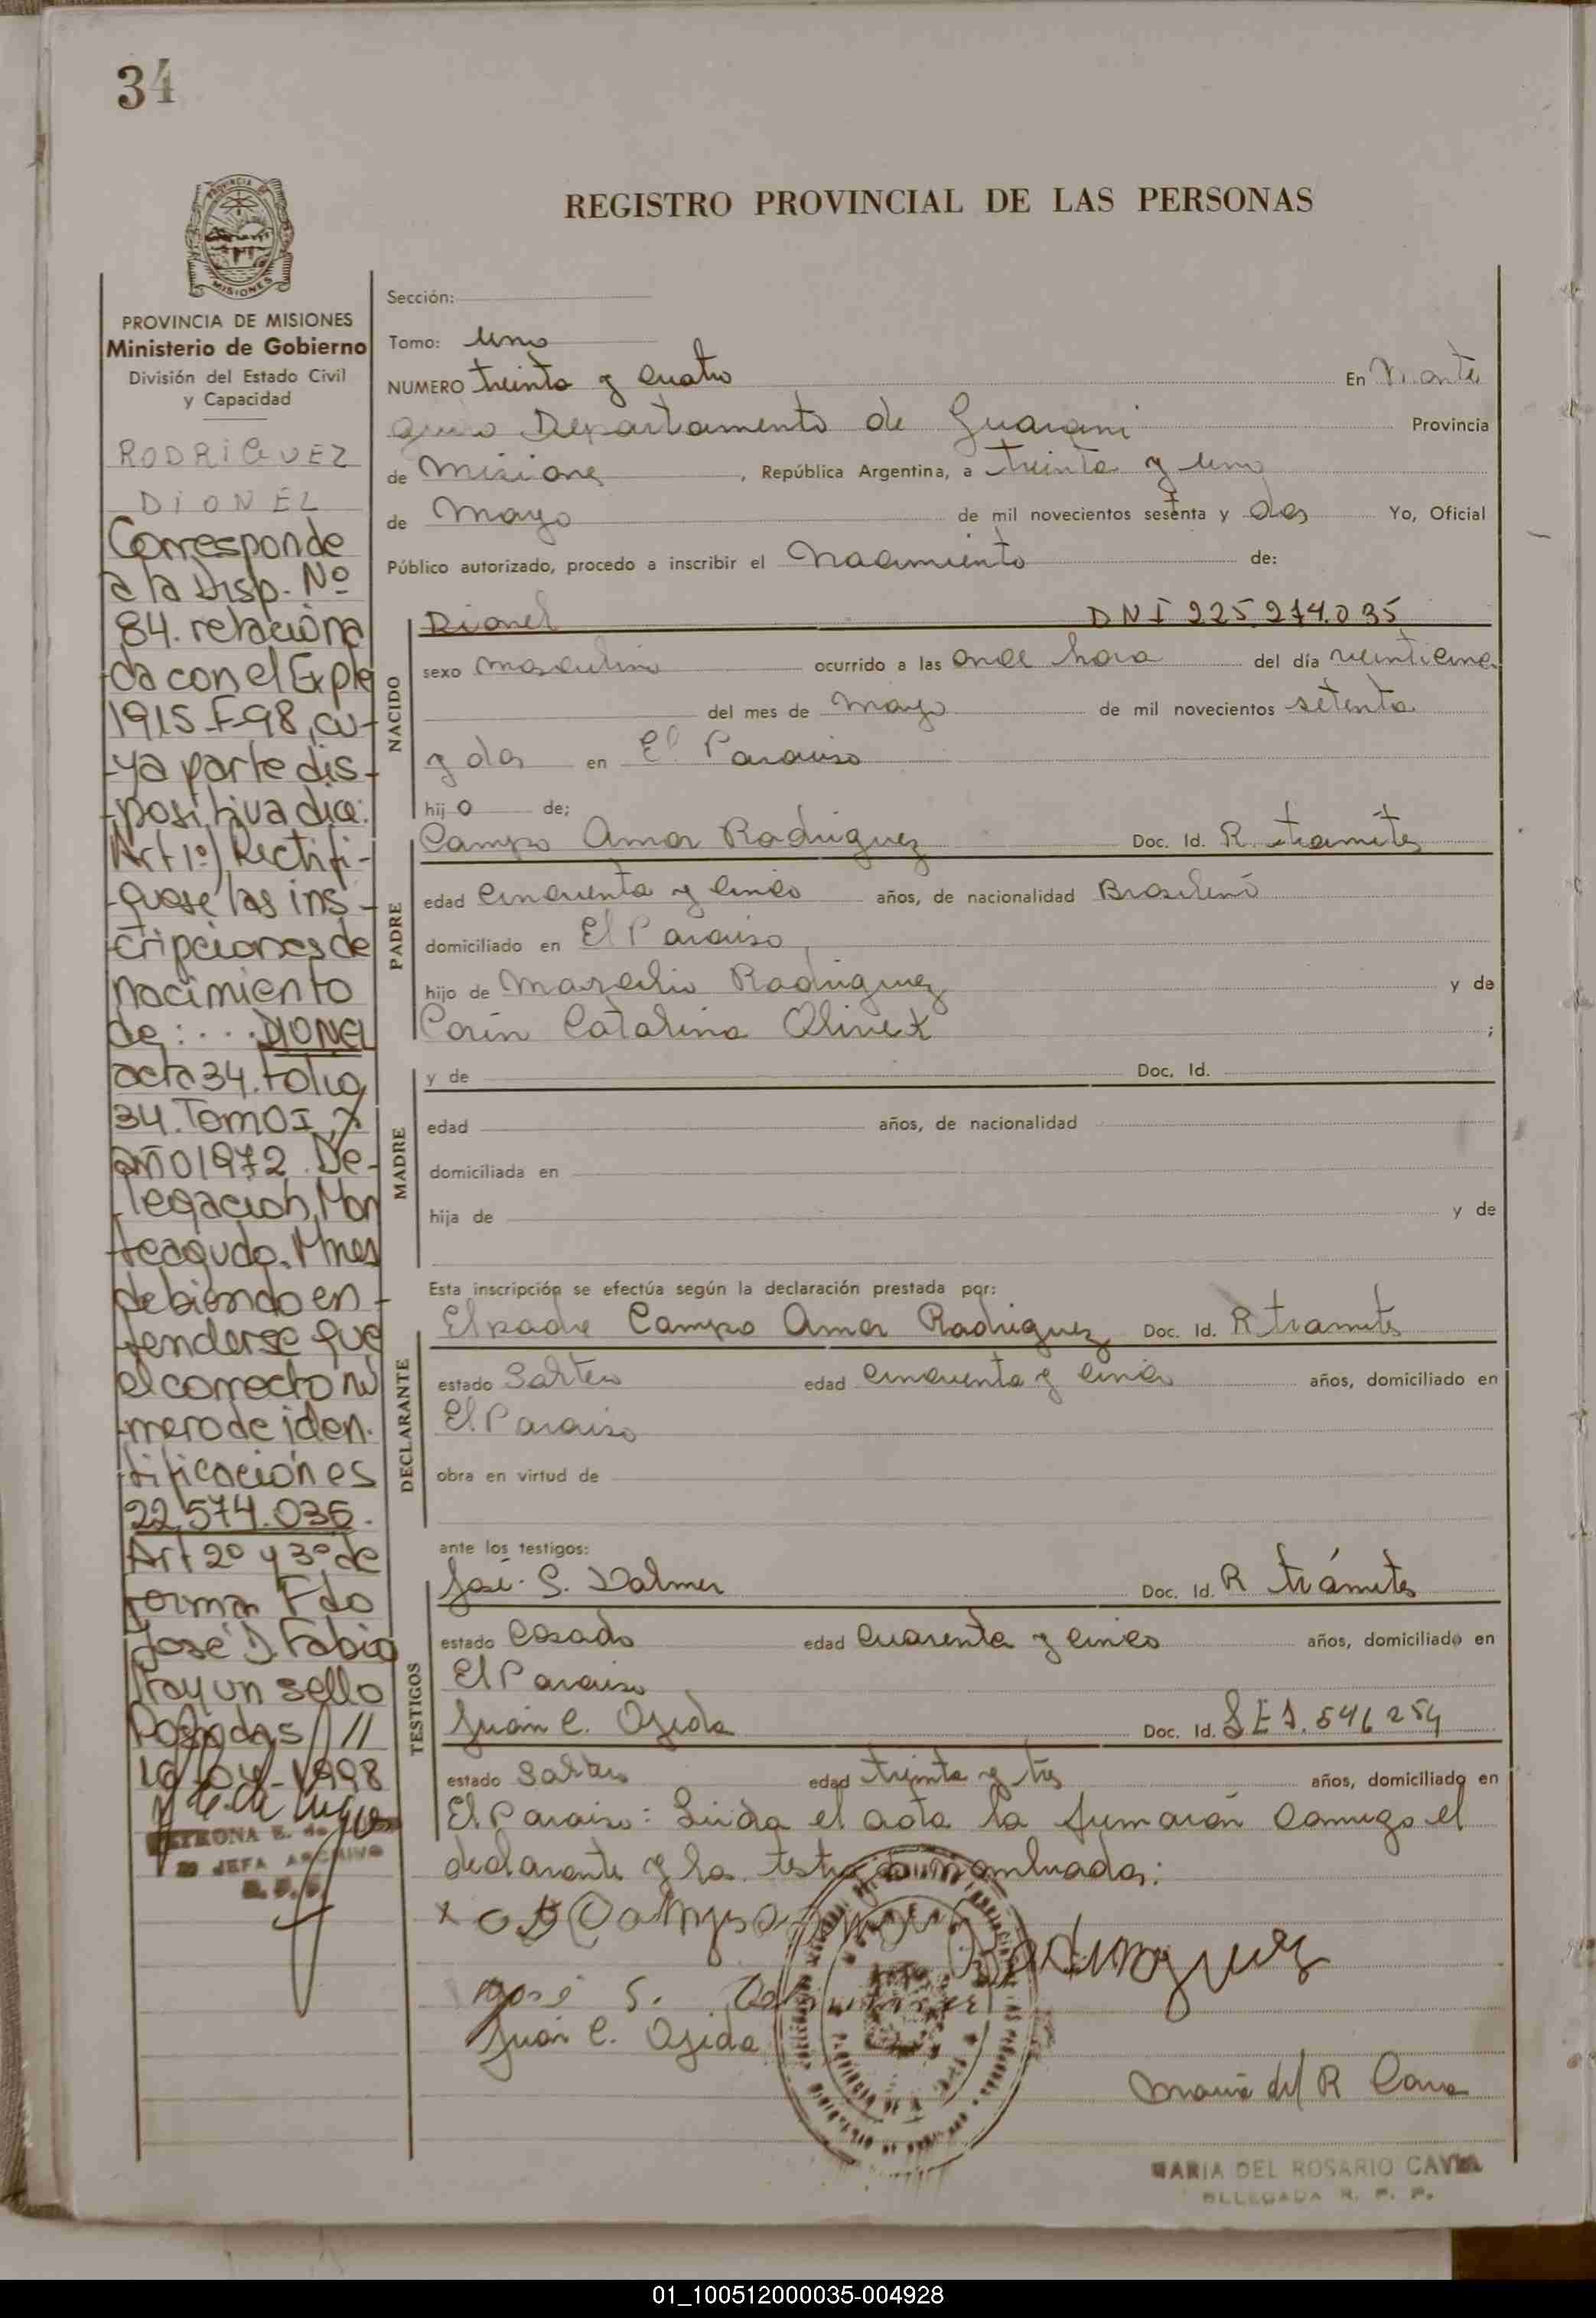 34
REGISTRO PROVINCIAL DE LAS PERSONAS
PROVINCIA DE MISIONES
Ministerio de Gobierno
División del Estado Civil
y Capacidad
RODRIGUEZ
DIONEL
Corresponde
a la Disp. Nº
84. relaciona
da con el Expte
1915-F-98, cu-
-ya parte dis-
-positiva dice:
Art 1º) Rectifi-
-quese las ins-
-cripciones de
nacimiento
de: ... DIONEL
acta 34. Folio
34. Tomo I,
año 1972. De-
legación, Mon
teagudo. Mnes
debiendo en-
tenderse que
el correcto nú
mero de iden-
tificación es
22.574.035.
Art 2º y 3º de
forma Fdo
José D. Fabio
Hay un sello
Posadas //
-04-1998
PETRONA E. de
JEFA ARCHIVO
Sección:
Tomo: uno
NUMERO treinta y cuatro En Monte
agudo Departamento de Guarani Provincia
de Misiones, República Argentina, a treinta y uno
de Mayo de mil novecientos sesenta y dos Yo, Oficial
Público autorizado, procedo a inscribir el Nacimiento de:
NACIDO
Dionel DNI 225.274.035
sexo masculino ocurrido a las once hora del día veintiuno
del mes de Mayo de mil novecientos setenta
y dos en El Paraiso
hijo de;
PADRE
Campo Amor Rodriguez Doc. Id. R. tramites
edad cincuenta y cinco años, de nacionalidad Brasileño
domiciliado en El Paraiso
hijo de Rodriguez y de
Catalina ;
MADRE
y de Doc. Id.
edad años, de nacionalidad
domiciliada en
hija de y de
Esta inscripción se efectúa según la declaración prestada por:
DECLARANTE
El padre Campo Amor Rodriguez Doc. Id. R tramites
estado Soltero edad cincuenta y cinco años, domiciliado en
El Paraiso
obra en virtud de
ante los testigos:
TESTIGOS
José S. Dalmer Doc. Id. R trámites
estado Casado edad cuarenta y cinco años, domiciliado en
El Paraiso
Juan C. Ojeda Doc. Id. 546 254
estado Soltero edad treinta y tres años, domiciliado en
El Paraiso: Leida el acta la firmaron conmigo el
declarante y los testigos nombrados:
x Campo Amor Rodriguez
José S.
Juan C. Ojeda
Maria del R Cava
MARIA DEL ROSARIO CAVIA
DELEGADA R. P. P.
01_100512000035-004928